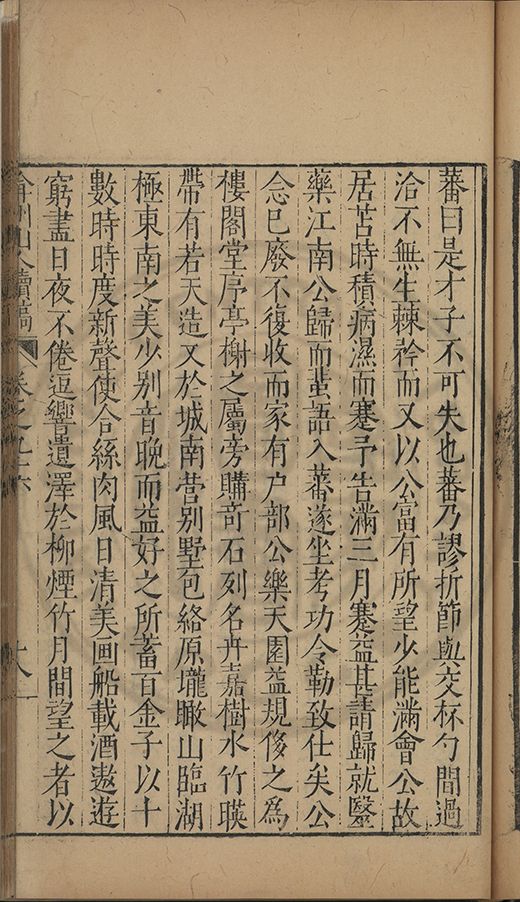 蕃曰是才子不可失也蕃乃謬折節與交杯勺間過
洽不無生棘衿而又以公富有所望少能滿會公故
居苦時積病濕而蹇予告滿三月蹇益甚請歸就毉
藥江南公歸而蜚語入蕃遂坐考功令勒致仕矣公
念已廢不復收而家有戶部公樂天園益規俢之為
樓閣堂序亭榭之屬旁購奇石列名卉嘉樹水竹暎
帶有若天造又於城南營别墅包絡原壠瞰山臨湖
極東南之美少别音晚而益好之所蓄百金子以十
數時時度新聲使合絲肉風日清美画船載酒遨遊
窮晝日夜不倦逗響遺澤於柳煙竹月間望之者以
弇州山人續稿 卷之九十六 十八